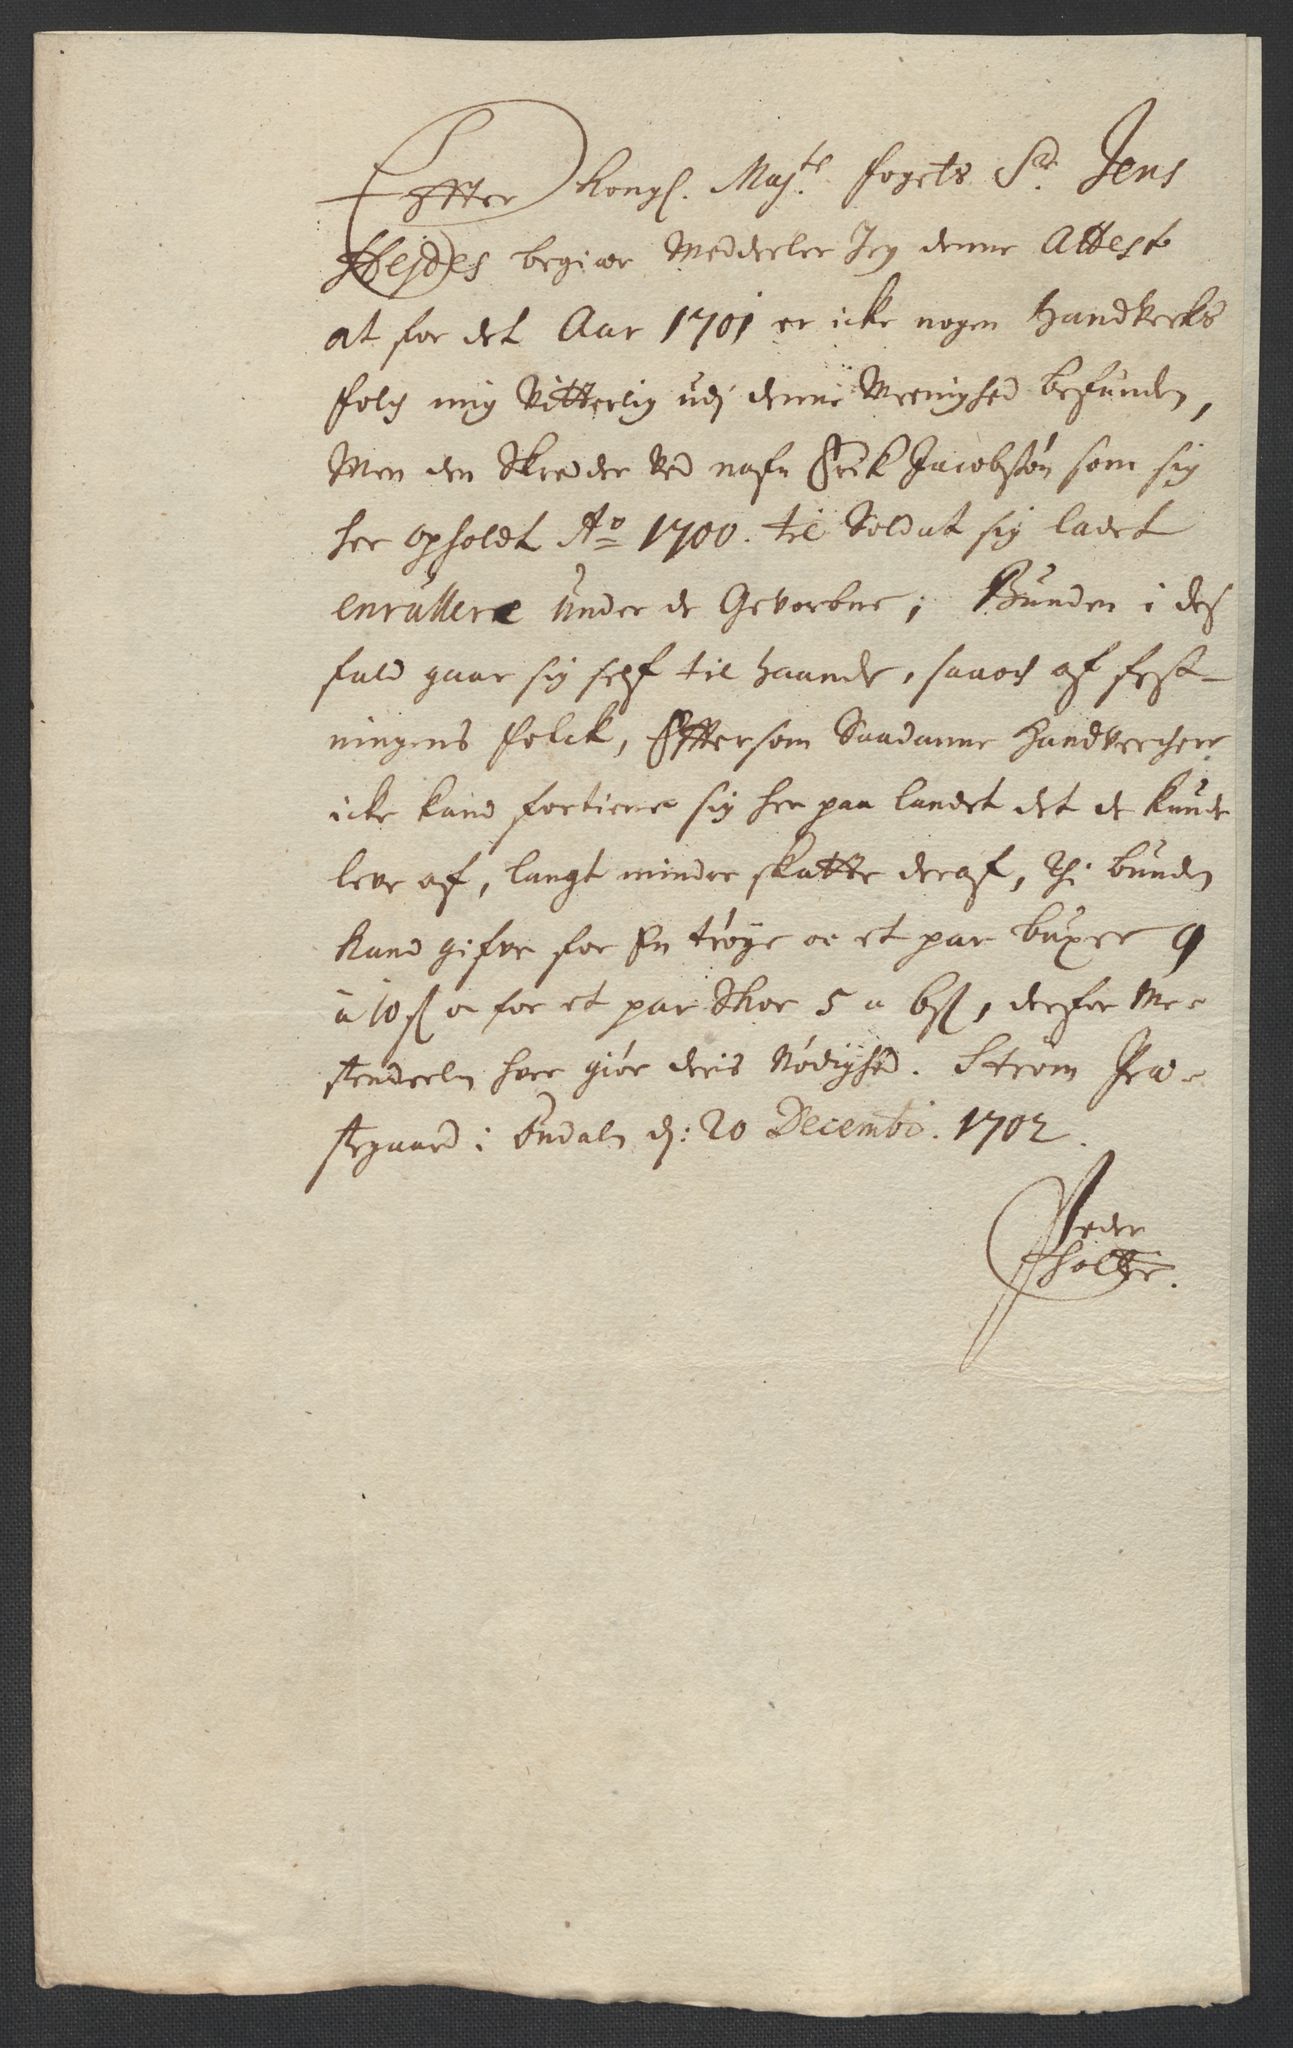 Effter Kongl. Majts. fogets Sr. Jens
Hejdes begiær Meddeeler Jeg denne Attest
at for det Aar 1701 er icke nogen Handverks
folch mig Vitterlig udj denne Meenighed befunden,
Men den Skredder ved nafn Erik Jacobsøn som sig
her opholdt Ao 1700. til Soldat sig ladet
enrullere under de Gevorbne; Bunden i des
fald gaar sig self til haande, saa och af fest-
ningens folck, Effter som Saadanne Handvercher
icke kand fortiene sig her paa landet det de kunde
leve af, langt mindre skatte deraf, Thi bunden
kand gifve for En trøye oc et par buxer 9
a 10 ß oc for et par Skoe 5 a 6 ß, derfor Me-
stendeeln hver giør deris Nødighed. Strøm Præ-
stegaard i Ondaln d: 20 Decembr. 1702.
Peder
Holter.